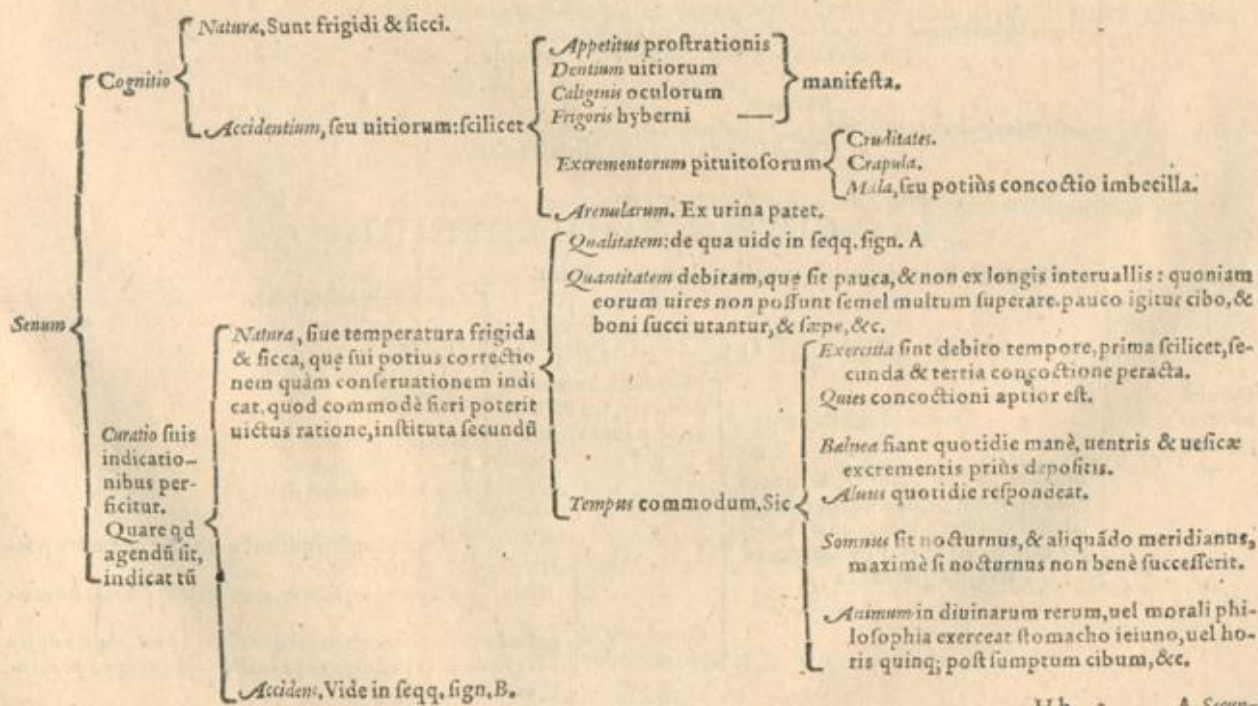 Naturæ, Sunt frigidi & ſicci.
Cognitio
Accidentium, ſeu uitiorum: ſcilicet
Appetitus proſtrationis
Dentium uitiorum
Caliginis oculorum
Frigoris hyberni
manifeſta.
Excrementorum pituitoſorum
Cruditates.
Crapula.
Mala, ſeu potiùs concoctio imbecilla.
Arenularum. Ex urina patet.
Senum
Curatio ſuis
indicatio-
nibus per-
ficitur.
Quare qd
agendũ ſit,
indicat tũ
Natura, ſiue temperatura frigida
& ſicca, quę ſui potius correctio
nem quàm conſeruationem indi
cat. quod commodè fieri poterit
uictus ratione, inſtituta ſecundũ
Qualitatem: de qua uide in ſeqq. ſign. A
Quantitatem debitam, quę ſit pauca, & non ex longis interuallis: quoniam
eorum uires non poſſunt ſemel multum ſuperare. pauco igitur cibo, &
boni ſucci utantur, & ſæpe, &c.
Tempus commodum, Sic
Exercitia ſint debito tempore, prima ſcilicet, ſe-
cunda & tertia concoctione peracta.
Quies concoctioni aptior eſt.
Balnea fiant quotidie manè, uentris & ueſicæ
excrementis priùs depoſitis.
Aluus quotidie reſpondeat.
Somnus ſit nocturnus, & aliquãdo meridianus,
maximè ſi nocturnus non benè ſucceſſerit.
Animum in diuinarum rerum, uel morali phi-
loſophia exerceat ſtomacho ieiuno, uel ho-
ris quinq; poſt ſumptum cibum, &c.
Accidens, Vide in ſeqq, ſign, B.
A Secun-